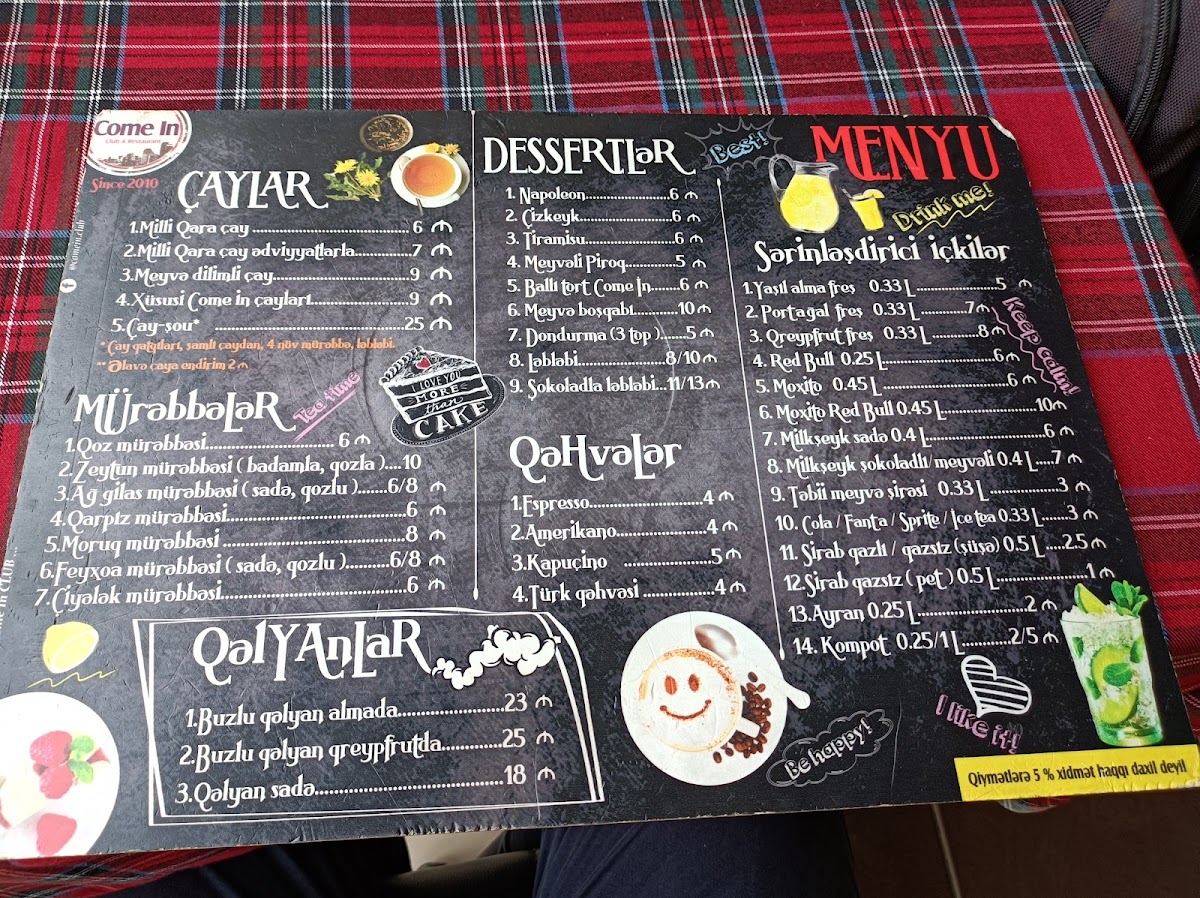 Come In
Club & Restaurant
Since 2010
@comein.club
ÇAYLAR
1.Milli Qara çay 6 ₼
2.Milli Qara çay ədviyyatlarla 7 ₼
3.Meyvə dilimli çay 9 ₼
4.Xüsusi Come in çayları 9 ₼
5.Çay-şou* 25 ₼
* Çay qəlyanları, şamlı çaydan, 4 növ mürəbbə, ləbləbi.
**Əlavə çaya endirim 2 ₼
Tea time
I LOVE YOU
MORE
than
CAKE
MÜrəbbəLəR
1.Qoz mürəbbəsi 6 ₼
2. Zeytun mürəbbəsi ( badamla, qozla ) 10
3.Ağ gilas mürəbbəsi ( sadə, qozlu ) 6/8 ₼
4.Qarpız mürəbbəsi 6 ₼
5.Moruq mürəbbəsi 8 ₼
6.Feyxoa mürəbbəsi ( sadə, qozlu ) 6/8 ₼
7. Çiyələk mürəbbəsi 6 ₼
QəlYAnLaR
1.Buzlu qəlyan almada 23 ₼
2.Buzlu qəlyan qreypfrutda 25 ₼
3.Qəlyan sadə 18 ₼
DESSERTLəR
Best!
1. Napoleon 6 ₼
2. Çizkeyk 6 ₼
3. Tiramisu 6 ₼
4. Meyvəli Piroq 5 ₼
5. Ballı tort Come In 6 ₼
6. Meyvə boşqabı 10 ₼
7. Dondurma (3 top ) 5 ₼
8. Ləbləbi 8/10 ₼
9. Şokoladla ləbləbi 11/13 ₼
QəHvəLər
1.Espresso 4 ₼
2.Amerikano 4 ₼
3.Kapuçino 5 ₼
4.Türk qəhvəsi 4 ₼
Be happy!
MENYU
Drink me!
Sərinləşdirici içkilər
1.Yaşıl alma freş 0.33 L 5 ₼
2. Portağal freş 0.33 L 7 ₼
3. Qreypfrut freş 0.33 L 8 ₼
4. Red Bull 0.25 L 6 ₼
5. Moxito 0.45 L 6 ₼
6. Moxito Red Bull 0.45 L 10 ₼
7. Milkşeyk sadə 0.4 L 6 ₼
8. Milkşeyk şokoladlı/ meyvəli 0.4 L 7 ₼
9. Təbii meyvə şirəsi 0.33 L 3 ₼
10. Cola / Fanta / Sprite / Ice tea 0.33 L 3 ₼
11. Sirab qazlı / qazsız (şüşə) 0.5 L 2.5 ₼
12.Sirab qazsız ( pet ) 0.5 L 1 ₼
13.Ayran 0.25 L 2 ₼
14. Kompot 0.25/1 L 2/5 ₼
Keep calm!
I like it!
Qiymətlərə 5 % xidmət haqqı daxil deyil